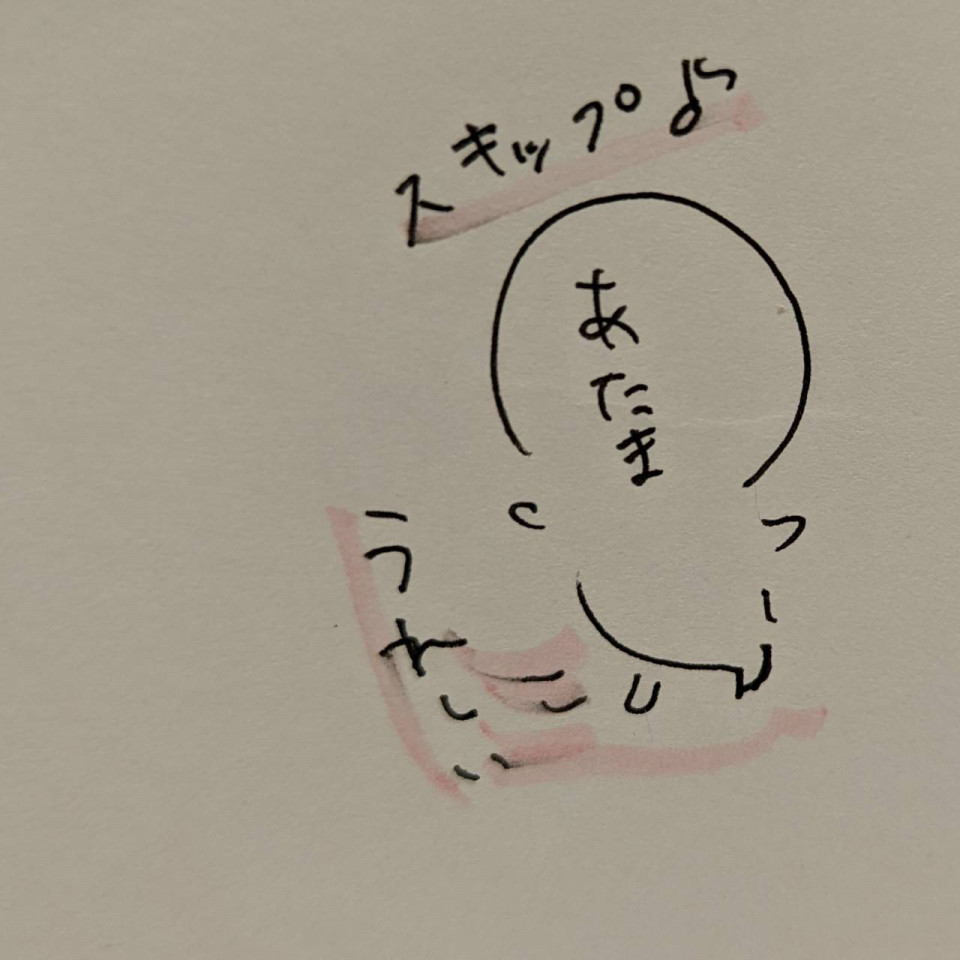 スキップ♪
あたま
うれしい